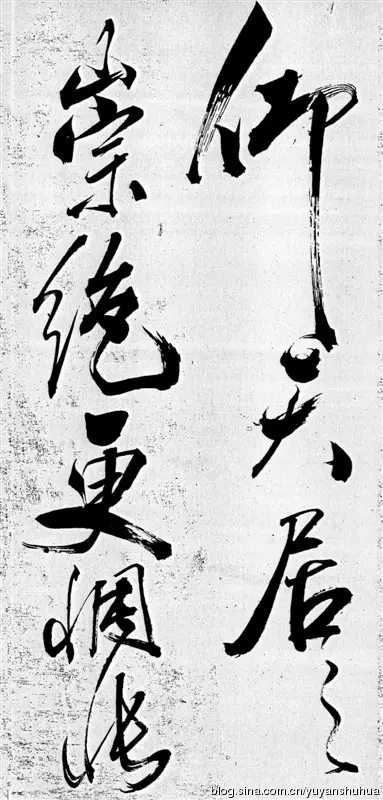 仰天居之
崇絶更惆悵
blog.sina.com.cn/yuyanshuhua